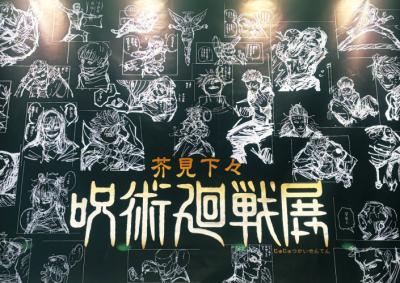 芥見下々
呪術廻戦展
じゅじゅつかいせんてん